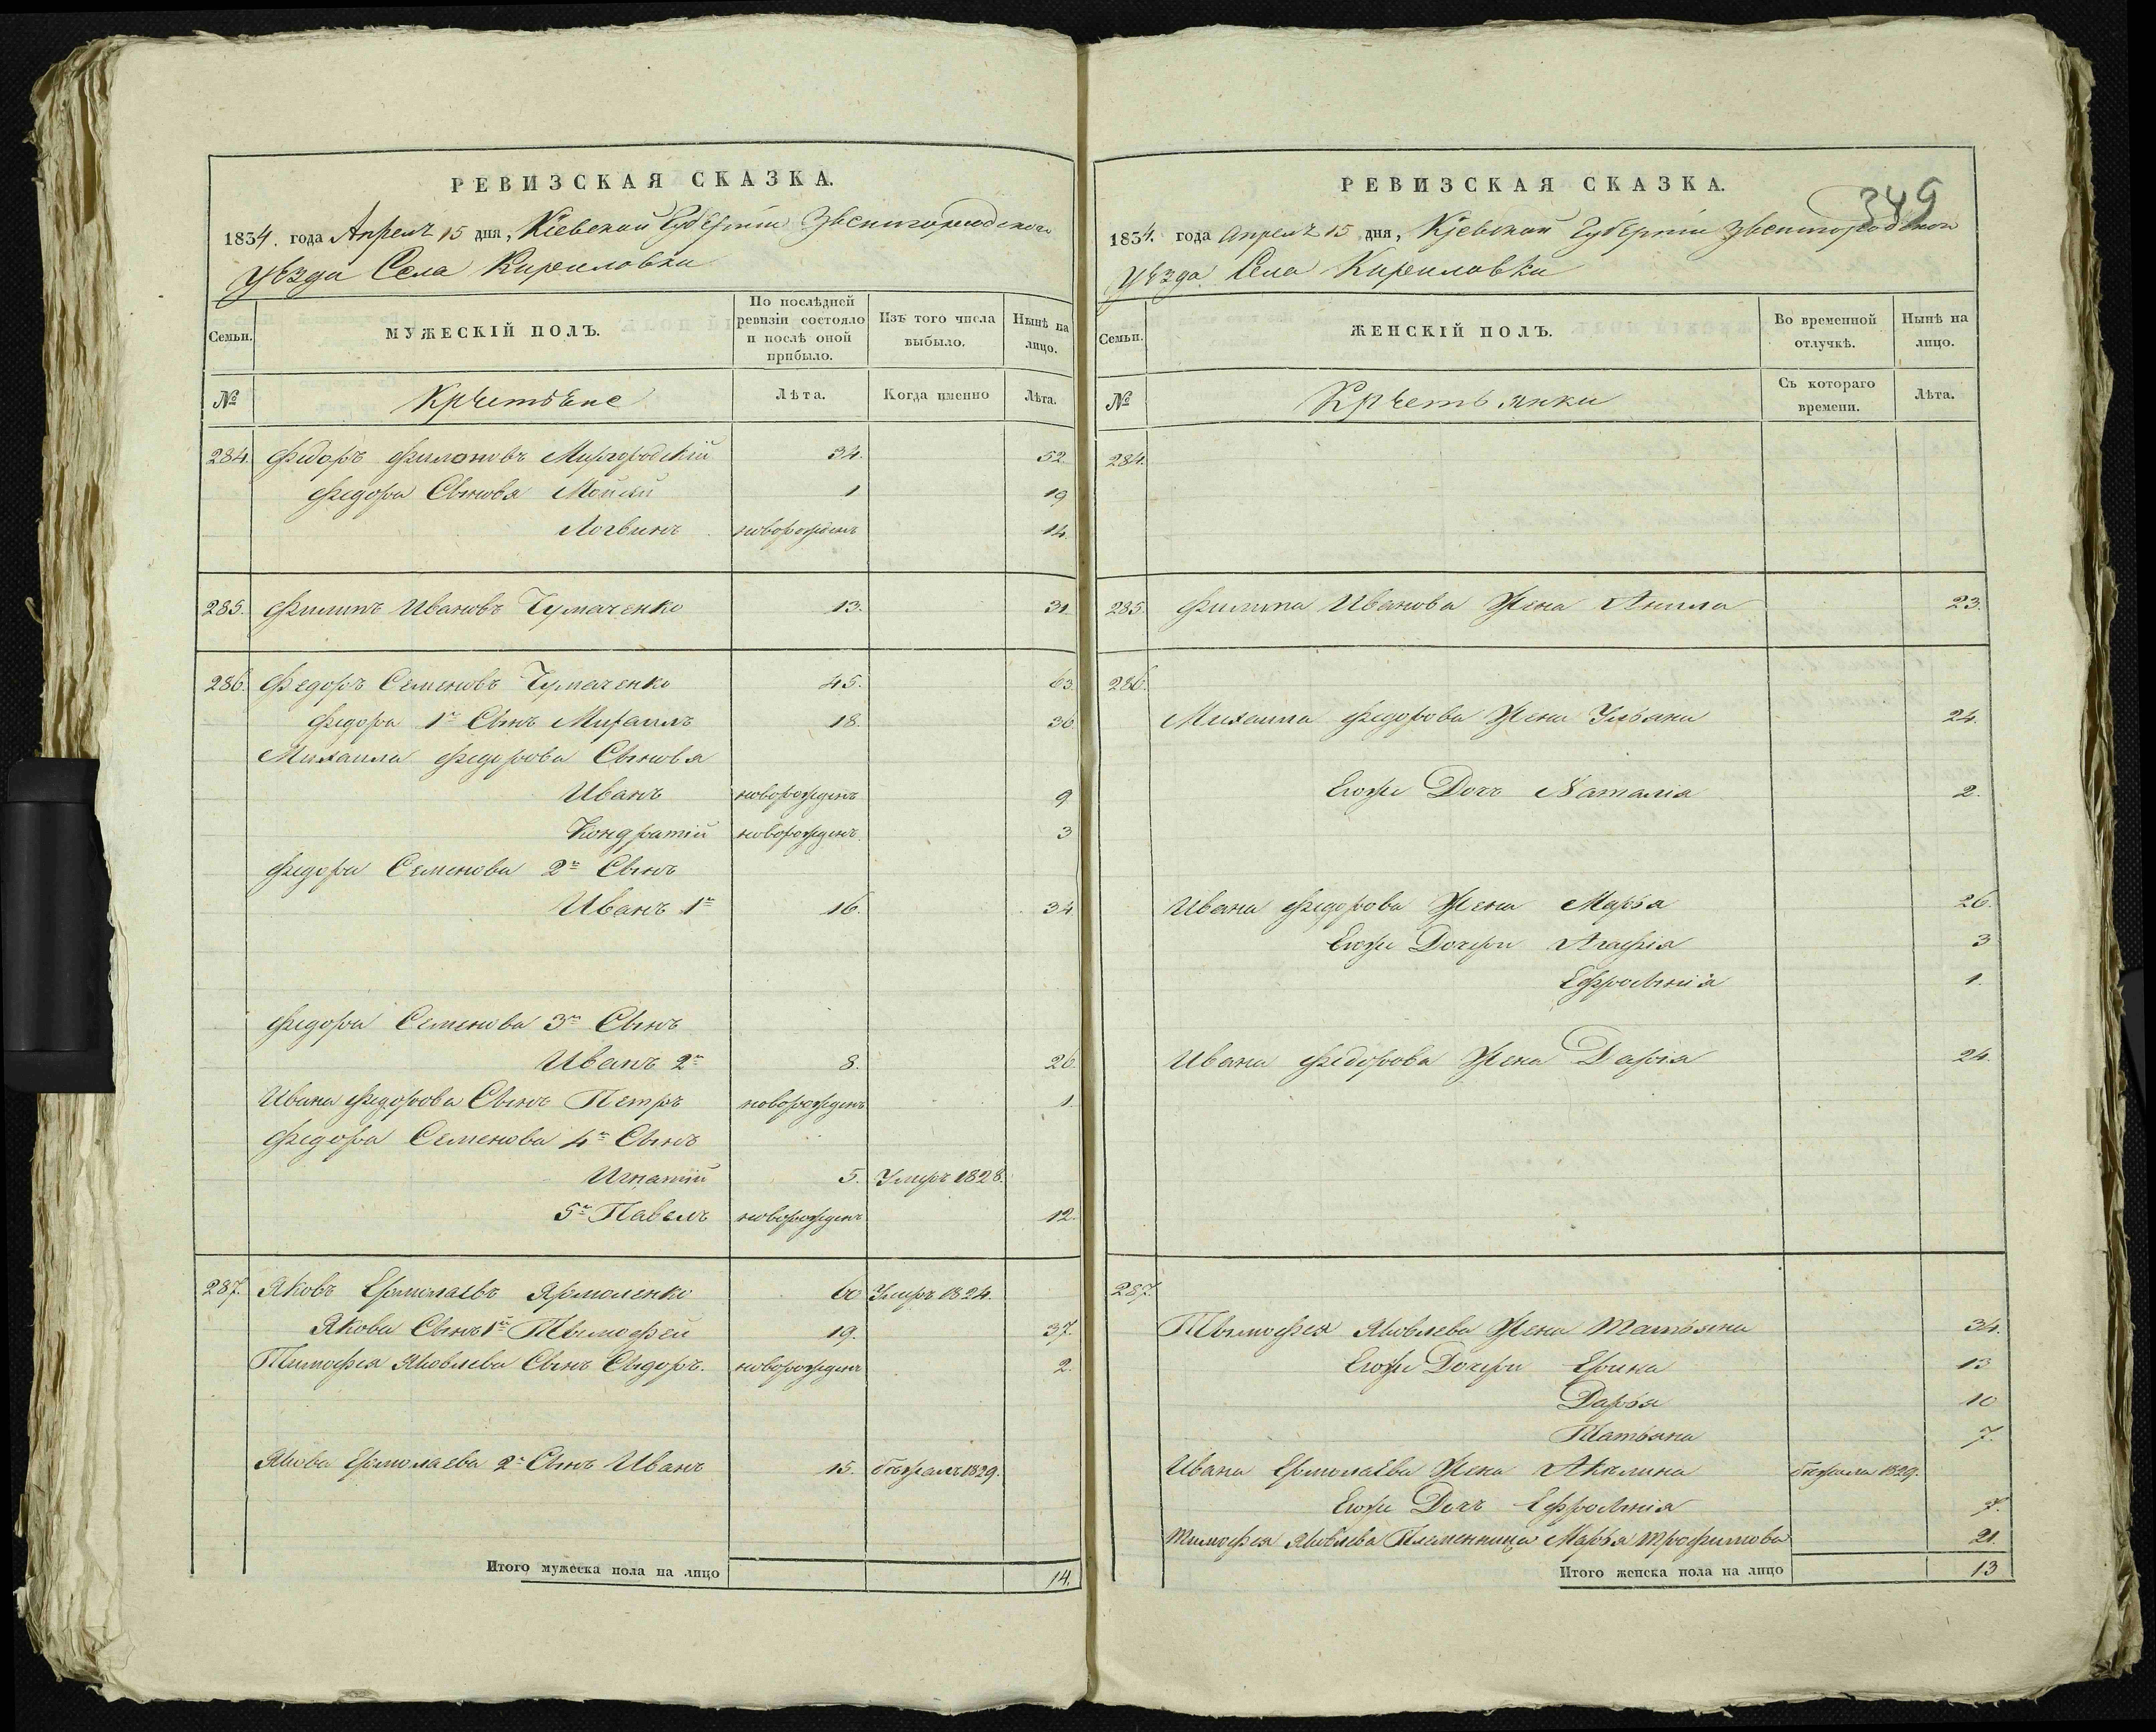 РЕВИЗСКАЯ СКАЗКА.
1834. года Апреля 15 дня, Кіевской Губерніи Звенигородского
уѣзда Села Кириловки
Семьи.
МУЖЕСКІЙ ПОЛЪ.
По послѣдней ревизіи состояло и послѣ оной прибыло.
Изъ того числа выбыло.
Нынѣ на лицо.
№
Крестьяне
Лѣта.
Когда именно
Лѣта.
284. Федоръ Филоновъ Миргородскій 34. 52.
Федора Сыновья Мойсей 1 19
Логвинъ новорожденъ 14.
285. Филипъ Ивановъ Чумаченко 13. 31.
286. Федоръ Семеновъ Чумаченко 45. 63.
Федора 1й Сынъ Михаилъ 18. 36.
Михаила Федорова Сыновья
Иванъ новорожденъ 9
Кондратій новорожденъ 3
Федора Семенова 2й Сынъ
Иванъ 1й 16. 34
Федора Семенова 3й Сынъ
Иванъ 2й 8. 26
Ивана Федорова Сынъ Петръ новорожденъ 1.
Федора Семенова 4й Сынъ
Игнатій 5. Умеръ 1828.
5й Павелъ новорожденъ 12.
287. Яковъ Ермолаевъ Ярмоленко 60 Умеръ 1824.
Якова Сынъ 1й Тымофей 19. 37.
Тимофея Яковлева Сынъ Сидоръ. новорожденъ 2.
Якова Ермолаева 2й Сынъ Иванъ 15. бѣжалъ 1829.
Итого мужеска пола на лицо 14.
349
РЕВИЗСКАЯ СКАЗКА.
1834. года Апреля 15 дня, Кіевской Губерніи Звенигородской
уѣзда Села Кириловки
Семьи.
ЖЕНСКІЙ ПОЛЪ.
Во временной отлучкѣ.
Нынѣ на лицо.
№
Крестьянки
Съ котораго времени.
Лѣта.
284.
285. Филипа Иванова Жена Анна 23.
286.
Михаила Федорова Жена Ульяна 24.
Егоже Дочь Наталія 2.
Ивана Федорова Жена Марья 26.
Егоже Дочери Агафія 3
Ефросинія 1.
Ивана Федорова Жена Дарія 24.
287.
Тымофея Яковлева Жена Татьяна 34.
Егоже Дочери Ерина 13
Дарья 10
Татьяна 7.
Ивана Ермолаева Жена Акилина бежала 1829.
Егоже Дочь Ефросинія 7.
Тимофея Яковлева Племенница Марья Трофимова 21.
Итого женска пола на лицо 13